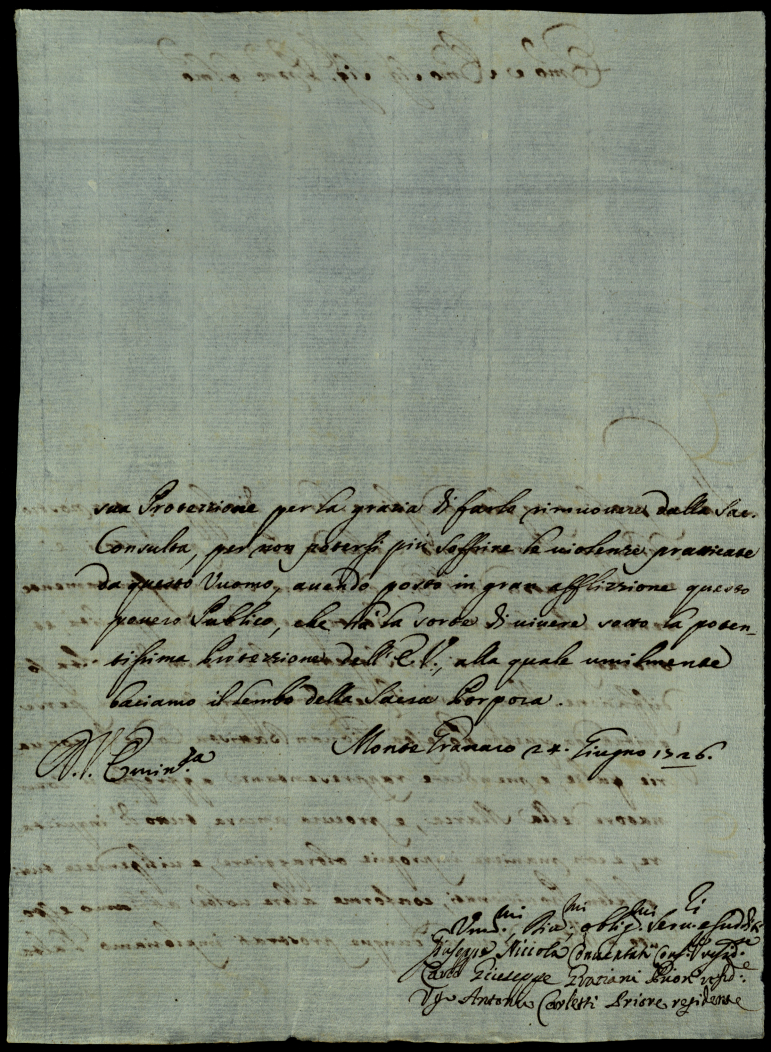 sua Protezzione per la grazia di farlo rimuovere dalla Sac.
Consulta, per non potersi più soffrire le violenze praticate
da questo Vuomo, auendo posto in gran afflizzione questo
pouero Publico, che hà la sorte di viuere sotto la poten-
tissima Protezzione dell'E. V., alla quale umilmente
baciamo il lembo della Sacra Porpora.
Monte Granaro 24. Giugno 1726.
D. V. Emin.za
Um.mi Dia:mi oblig.mi Seru. e sudditi
Giuseppe Niccola
Carlo Giuseppe Graziani Priore resid.e
Antonio Carletti Priore residente